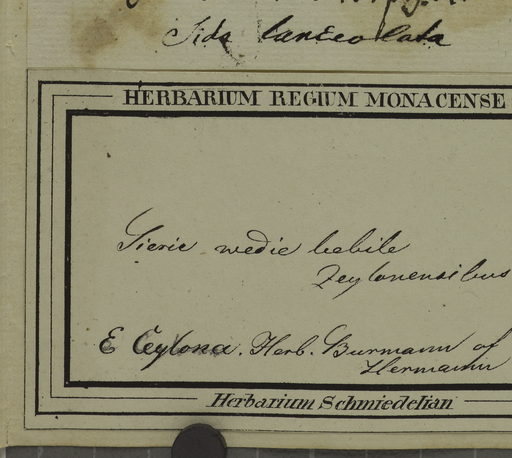 Sida lanceolata
HERBARIUM REGIUM MONACENSE
Sierie wedie bebile
Zeylonensibus
E Ceylona. Herb. Burmann of
Hermann
Herbarium Schmiedelian